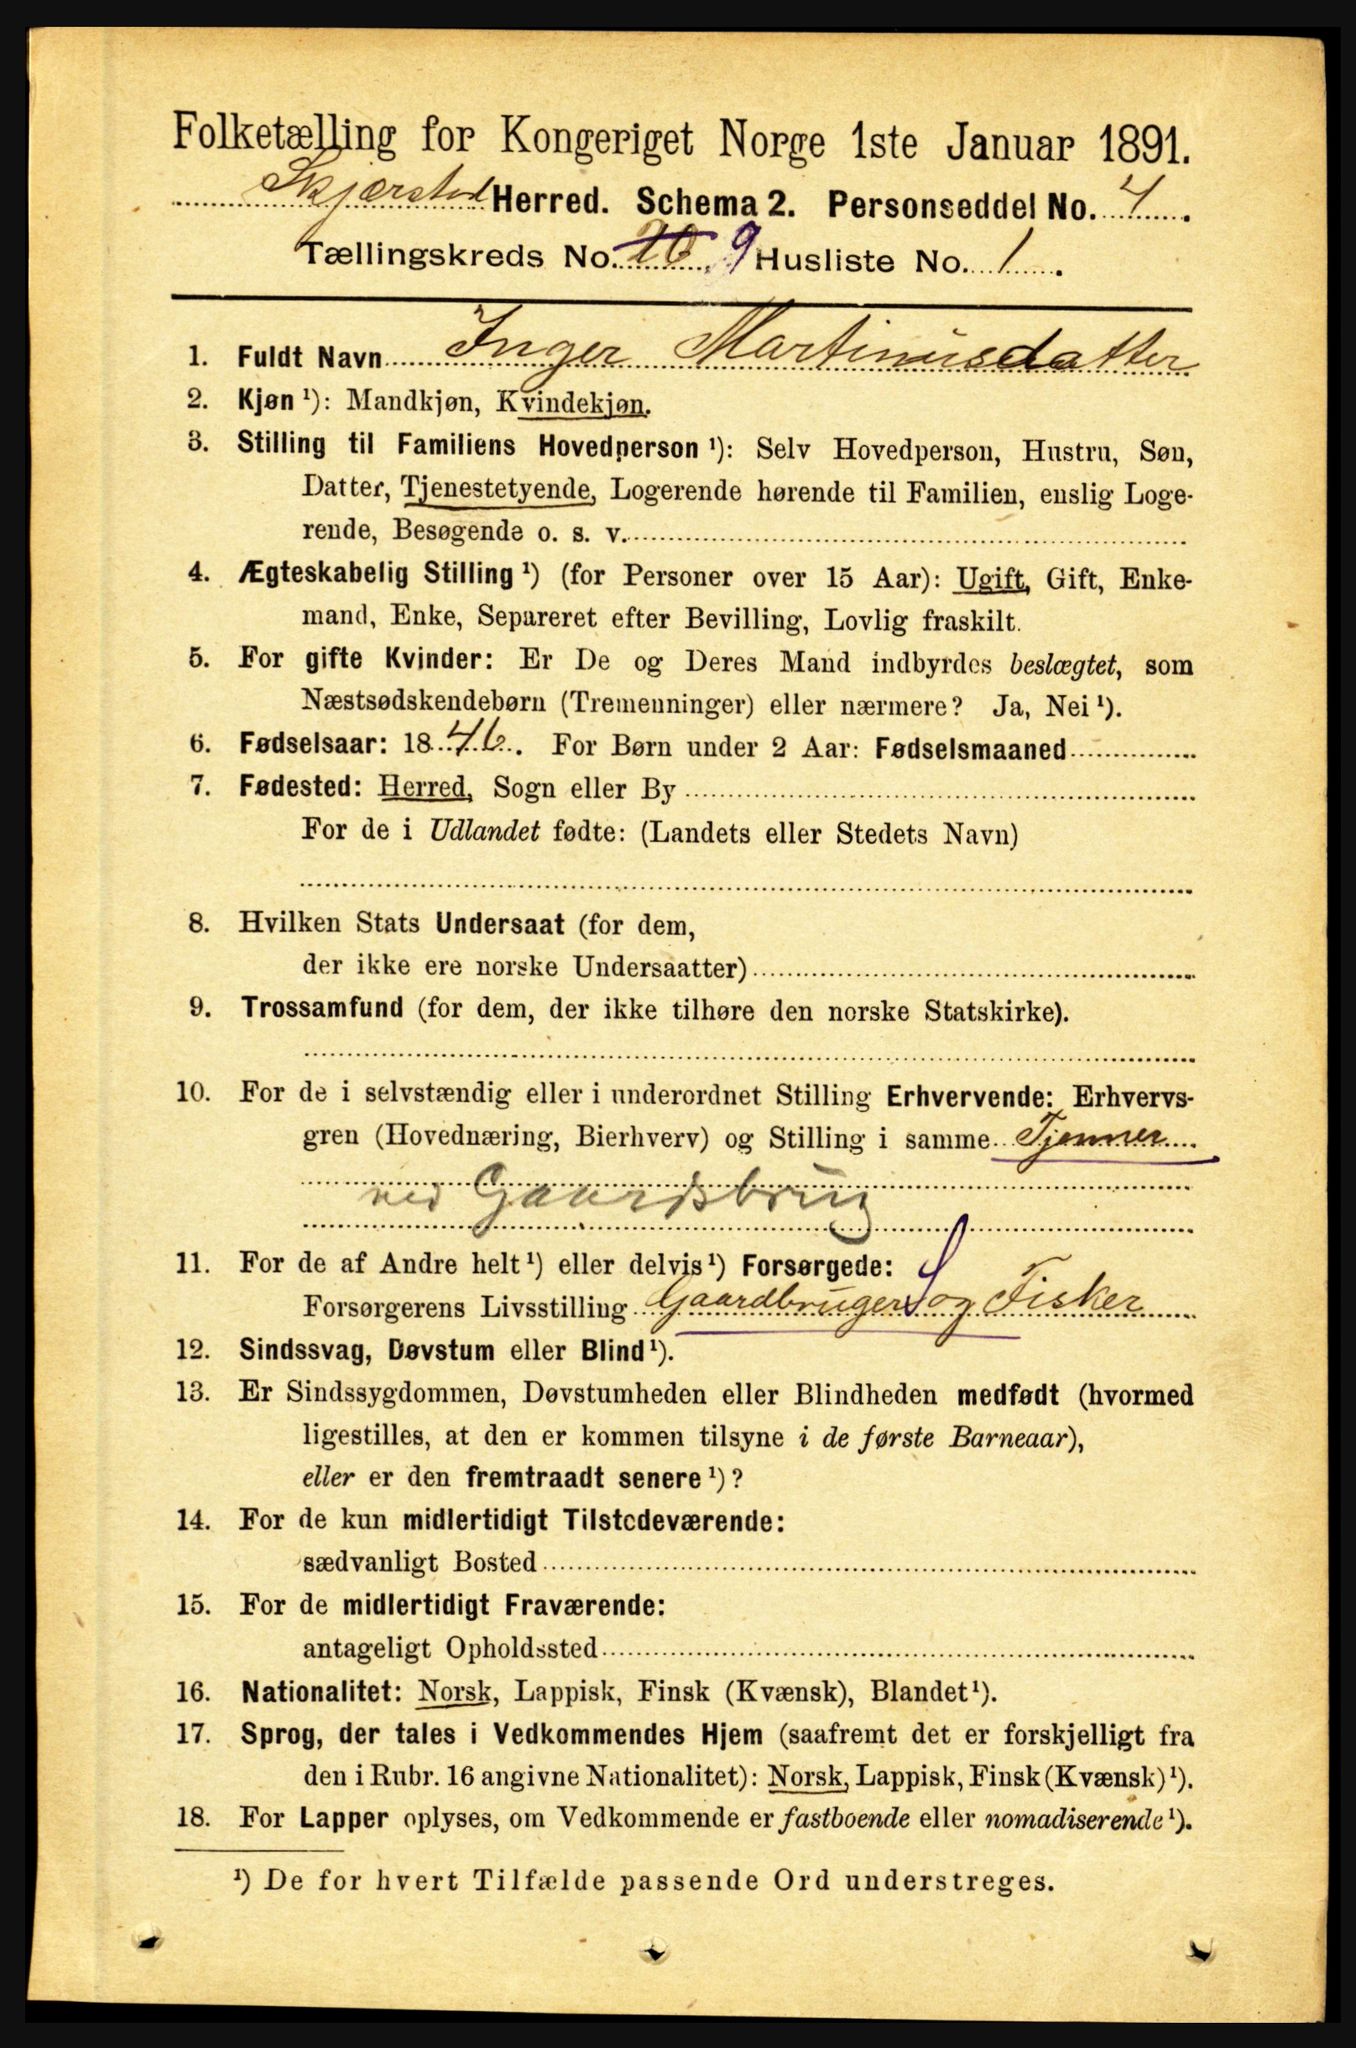 Folketælling for Kongeriget Norge 1ste Januar 1891.
Skjærstad Herred. Schema 2. Personseddel No. 4.
Tællingskreds No. 20 9 Husliste No. 1.
1. Fuldt Navn Inger Martinusdatter
2. Kjøn ¹): Mandkjøn, Kvindekjøn.
3. Stilling til Familiens Hovedperson ¹): Selv Hovedperson, Hustru, Søn,
Datter, Tjenestetyende, Logerende hørende til Familien, enslig Loge-
rende, Besøgende o. s. v.
4. Ægteskabelig Stilling ¹) (for Personer over 15 Aar): Ugift, Gift, Enke-
mand, Enke, Separeret efter Bevilling, Lovlig fraskilt.
5. For gifte Kvinder: Er De og Deres Mand indbyrdes beslægtet, som
Næstsødskendebørn (Tremenninger) eller nærmere? Ja, Nei ¹).
6. Fødselsaar: 1846. For Børn under 2 Aar: Fødselsmaaned
7. Fødested: Herred, Sogn eller By
For de i Udlandet fødte: (Landets eller Stedets Navn)
8. Hvilken Stats Undersaat (for dem,
der ikke ere norske Undersaatter)
9. Trossamfund (for dem, der ikke tilhøre den norske Statskirke).
10. For de i selvstændig eller i underordnet Stilling Erhvervende: Erhvervs-
gren (Hovednæring, Bierhverv) og Stilling i samme Tjener
ved Gaardsbrug
11. For de af Andre helt ¹) eller delvis ¹) Forsørgede:
Forsørgerens Livsstilling Gaardbruger og Fisker
12. Sindssvag, Døvstum eller Blind ¹).
13. Er Sindssygdommen, Døvstumheden eller Blindheden medfødt (hvormed
ligestilles, at den er kommen tilsyne i de første Barneaar),
eller er den fremtraadt senere ¹)?
14. For de kun midlertidigt Tilstedeværende:
sædvanligt Bosted
15. For de midlertidigt Fraværende:
antageligt Opholdssted
16. Nationalitet: Norsk, Lappisk, Finsk (Kvænsk), Blandet ¹).
17. Sprog, der tales i Vedkommendes Hjem (saafremt det er forskjelligt fra
den i Rubr. 16 angivne Nationalitet): Norsk, Lappisk, Finsk (Kvænsk) ¹).
18. For Lapper oplyses, om Vedkommende er fastboende eller nomadiserende ¹).
¹) De for hvert Tilfælde passende Ord understreges.